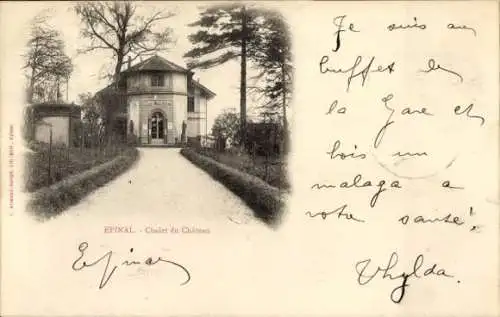 EPINAL. - Chalet du Château
Epinal
Je suis au
buffet de
la Gare et
bois un
malaga a
votre santé!